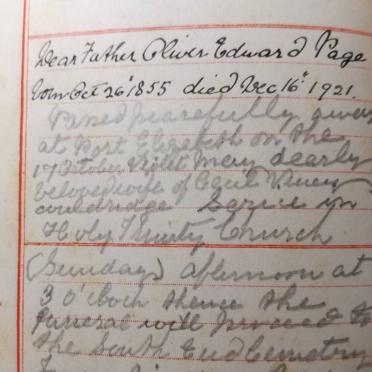 Dear Father Oliver Edward Page
born Oct 26' 1855 died Dec 16" 1921.
Passed peacefully away
at Port Elizabeth on the
17 October Violet May dearly
beloved wife of Cecil Viney
Service in
Holy Trinity Church
(Sunday) afternoon at
3 O'Clock thence the
funeral will proceed to
the South End Cemetery